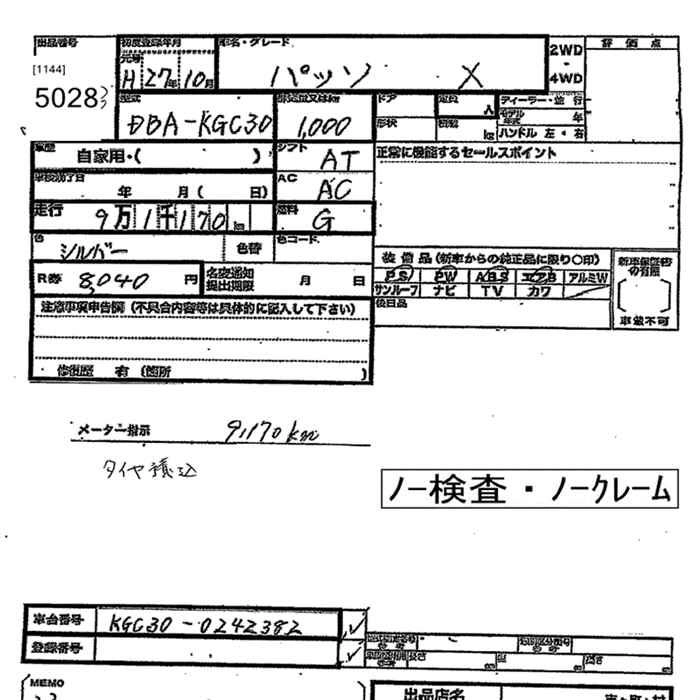 出品番号 初度登録年月 車名・グレード 2WD・4WD 評価点
[1144] 元号 H 27年 10月 パッソ X
5028
型式 DBA-KGC30 1,000 ドア 定員 人 ディーラー・並行
形状 積載 kg モデル年式 年
ハンドル 左・右
車歴 自家用・( ) シフト AT 正常に機能するセールスポイント
車検満了日 年 月( 日) AC AC
走行 9万1千170 km 燃料 G
色 シルバー 色替 色コード 装備品(新車からの純正品に限り〇印) 新車保証書の有無
R券 8,040 円 名変通知提出期限 月 日 PS PW ABS エアB アルミW
サンルーフ ナビ TV カワ
注意事項申告欄(不具合内容等は具体的に記入して下さい) 後日品 車載不可
修復歴 有(箇所 )
メーター指示 9,170km
タイヤ積込
ノー検査・ノークレーム
車台番号 KGC30-0242382
登録番号
MEMO 出品店名